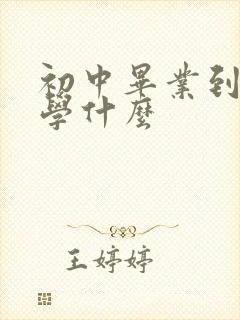 初中畢業到
學什麼
王婷婷